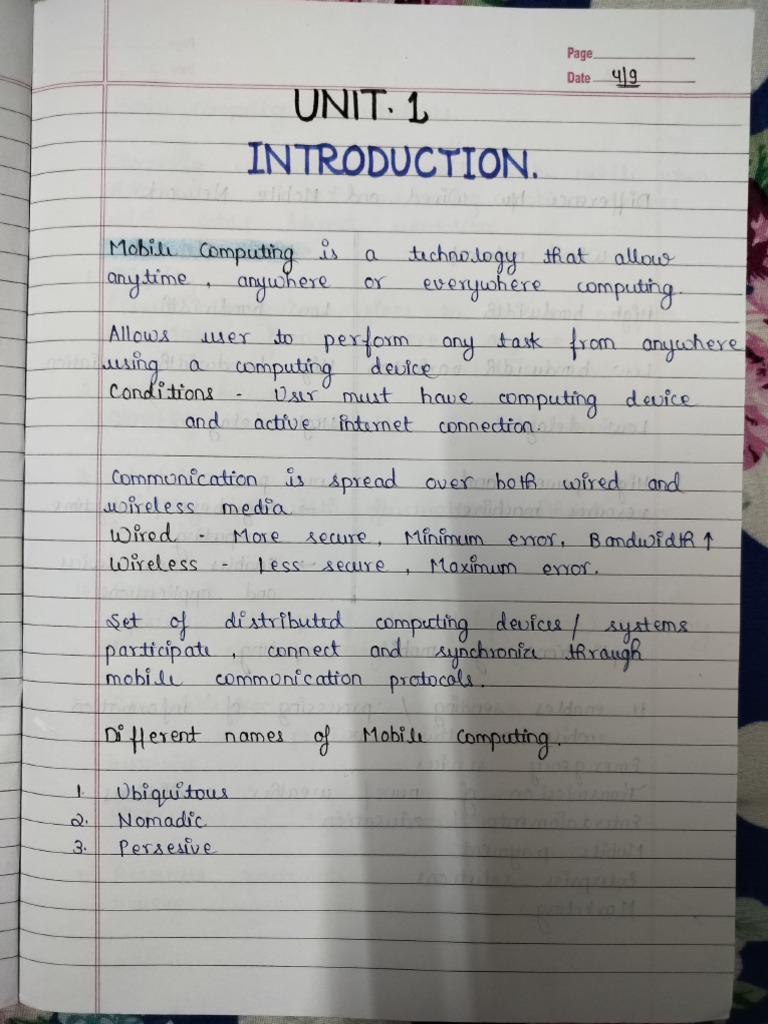 Page
Date 4/9
UNIT. 1
INTRODUCTION.
Mobile Computing is a technology that allow
anytime, anywhere or everywhere computing.
Allows user to perform any task from anywhere
using a computing device
Conditions - User must have computing device
and active internet connection.
Communication is spread over both wired and
wireless media
Wired - More secure, Minimum error, Bandwidth ↑
Wireless - Less secure, Maximum error.
Set of distributed computing devices / systems
participate, connect and synchronize through
mobile communication protocals.
Different names of Mobile Computing.
1. Ubiquitous
2. Nomadic
3. Persesive